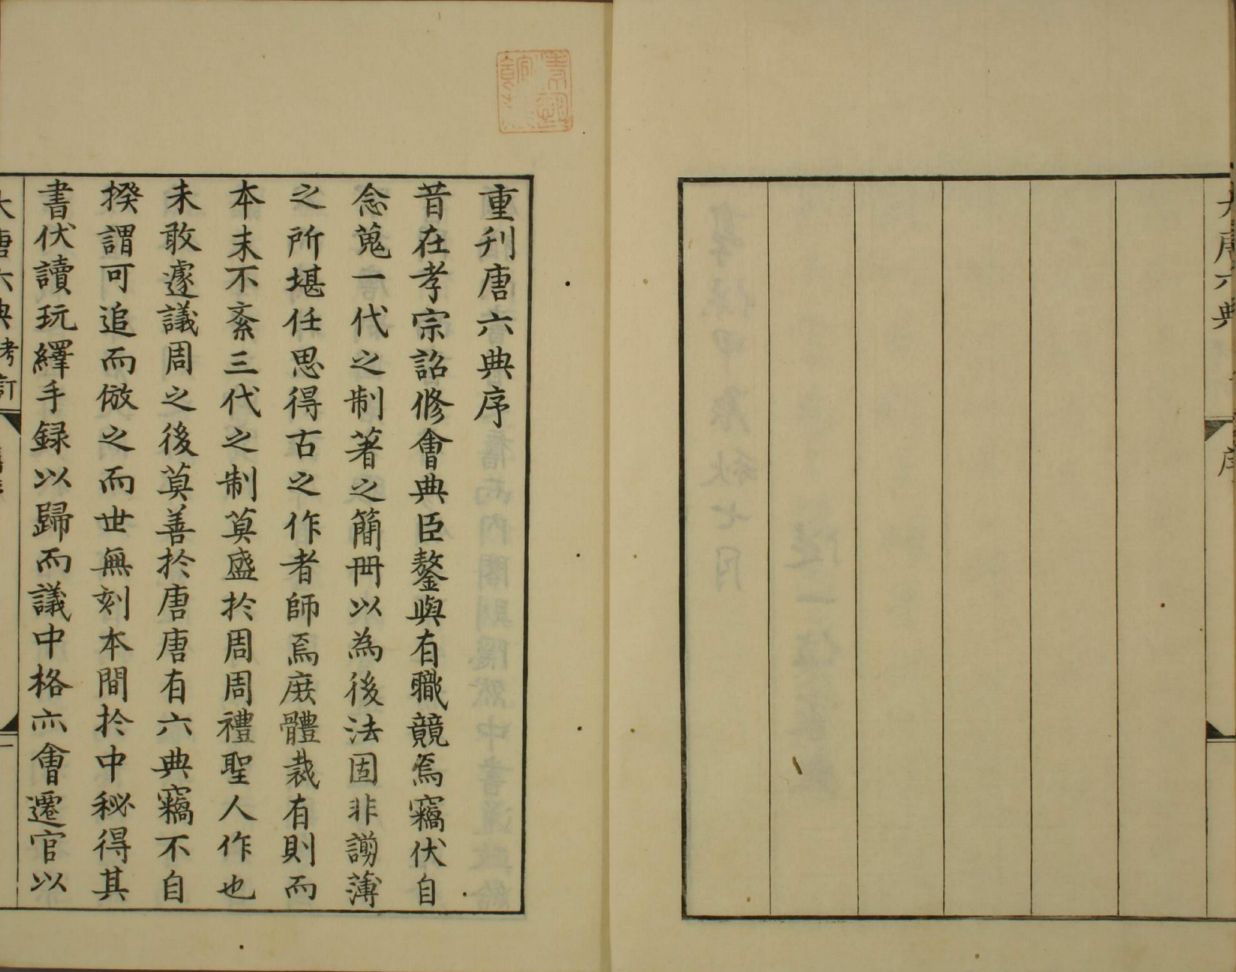 大唐六典
序
重刋唐六典序
昔在孝宗詔修會典臣鏊與有職競焉竊伏自
念蒐一代之制著之簡冊以為後法固非謭薄
之所堪任思得古之作者師焉庶體裁有則而
本末不紊三代之制莫盛於周周禮聖人作也
未敢遽議周之後莫善於唐唐有六典竊不自
揆謂可追而倣之而世無刻本間於中秘得其
書伏讀玩繹手録以歸而議中格亦會遷官以
大唐六典考訂
一